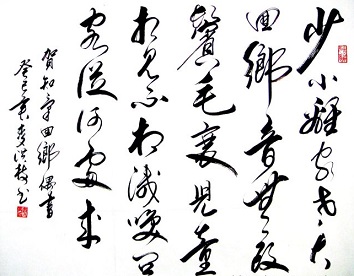 少小離家老大
回鄉音無改
鬢毛衰兒童
相見不相識咲问
客從何處來
賀知章回鄉偶書
癸巳